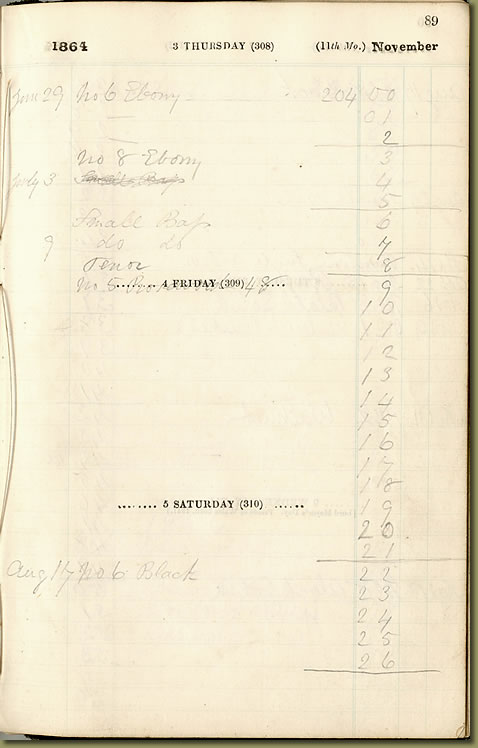 89
1864 3 THURSDAY (308) (11th Mo.) November
June 29 No 6 Ebony 204 00
01
2
No 8 Ebony 3
July 3 Small Bass 4
5
Small Bass 6
9 do do 7
Tenor 8
No 5 48 9
........ 4 FRIDAY (309) ......
10
11
12
13
14
15
16
17
18
........ 5 SATURDAY (310) ...... 19
20
21
Aug 17 No 6 Black 22
23
24
25
26